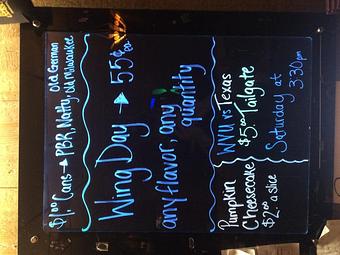 $1.00 Cans → PBR, Natty, Old German
Old Milwaukee
Wing Day → 55¢ ea.
any flavor, any
quantity
WVU vs Texas
$5.00 Tailgate
Saturday at
3:30pm
Pumpkin
Cheesecake
$2.00 a slice